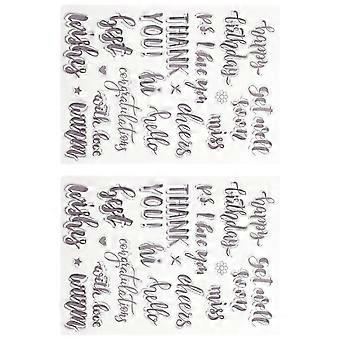 happy get well
birthday soon
P.S. I love you miss
THANK x cheers
YOU! hi hello
congratulations
best with love
wishes warm
happy get well
birthday soon
P.S. I love you miss
THANK x cheers
YOU! hi hello
congratulations
best with love
wishes warm